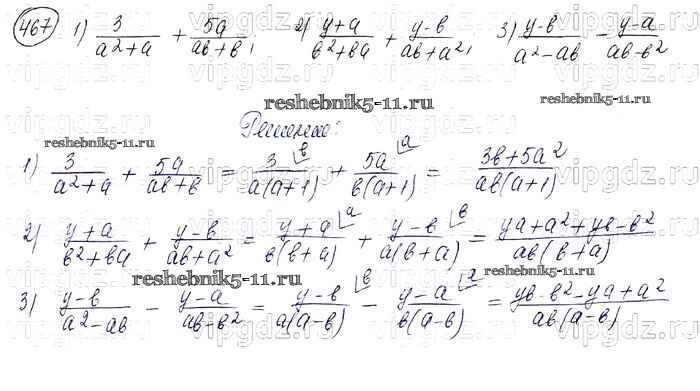 467 1) 3/(a²+a) + 5a/(ab+b), 2) (y+a)/(b²+ba) + (y-b)/(ab+a²), 3) (y-b)/(a²-ab) - (y-a)/(ab-b²)
reshebnik5-11.ru reshebnik5-11.ru
Решение:
reshebnik5-11.ru
1) 3/(a²+a) + 5a/(ab+b) = 3/(a(a+1)) ⌊b + 5a/(b(a+1)) ⌊a = (3b+5a²)/(ab(a+1))
2) (y+a)/(b²+ba) + (y-b)/(ab+a²) = (y+a)/(b(b+a)) ⌊a + (y-b)/(a(b+a)) ⌊b = (ya+a²+yb-b²)/(ab(b+a))
reshebnik5-11.ru reshebnik5-11.ru
3) (y-b)/(a²-ab) - (y-a)/(ab-b²) = (y-b)/(a(a-b)) ⌊b - (y-a)/(b(a-b)) ⌊a = (yb-b²-ya+a²)/(ab(a-b))
vipgdz.ru